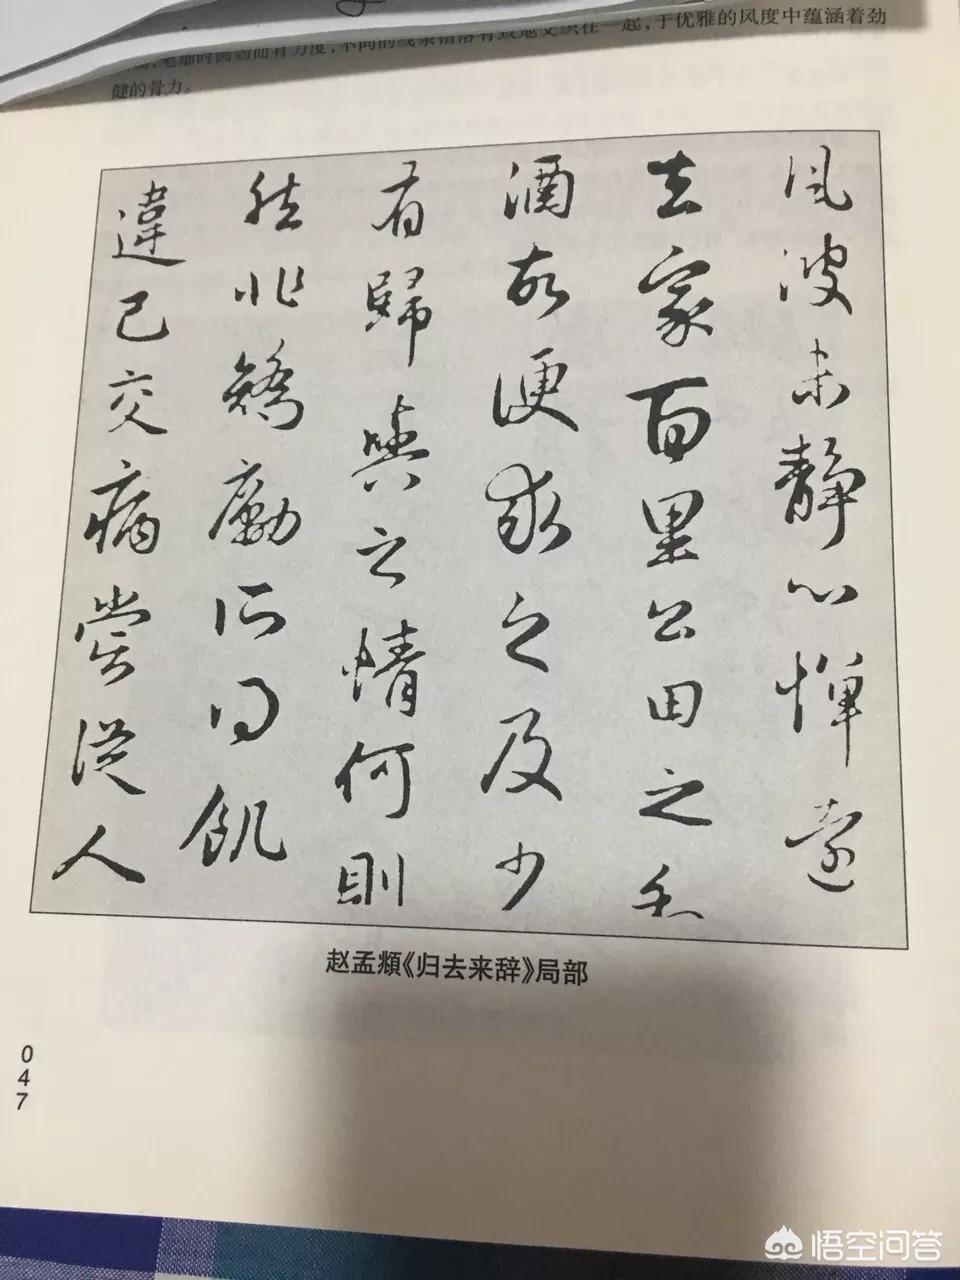 时圆劲而有力度，不同的线条错落有致地交织在一起，于优雅的风度中蕴涵着劲
健的骨力。
風波未静心惮遠
去家百里公田之利
酒故便求之及少
有歸與之情何則
然非矯勵所得飢
違己交病嘗從人
赵孟頫《归去来辞》局部
047
悟空问答